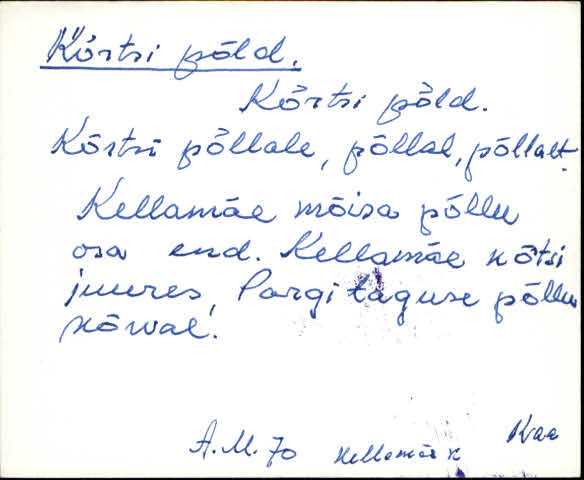 Kõrtsi põld.
Kõrtsi põld.
Kõrtsi põllale, põllal, põllalt.
Kellamäe mõisa põllu
osa end. Kellamäe kõtsi
juures, Pargitaguse põllu
kõrval.
A.M. 70 Kellamäe k Kaa